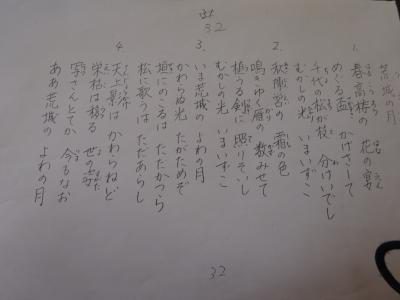 32
荒城の月
1.
春高楼の 花の宴
めぐる盃 かげさして
千代の松が枝 分けいでし
むかしの光 いまいずこ
2.
秋陣営の 霜の色
鳴きゆく雁の 数みせて
植うる剣に 照りそいし
むかしの光 いまいずこ
3.
いま荒城の よわの月
かわらぬ光 たがためぞ
垣にのこるは ただかつら
松に歌うは ただあらし
4.
天上影は かわらねど
栄枯は移る 世の姿
写さんとてか 今もなお
ああ荒城の よわの月
32